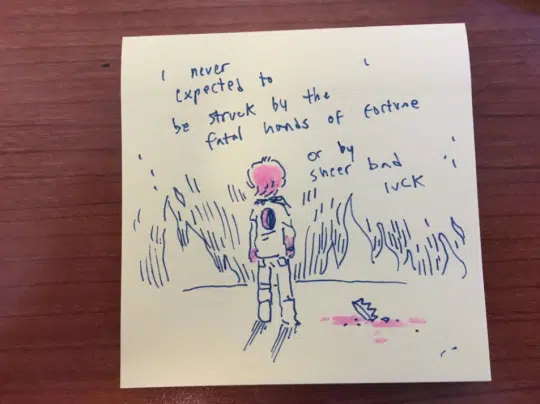 i never
expected to
be struck by the
fatal hands of fortune
or by
sheer bad
luck